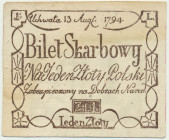 Uchwała 13 Augt. 1794.
Bilet Skarbowy
Na Jeden Złoty Polski
Zabezpieczony na Dobrach Narod
Ieden Złoty